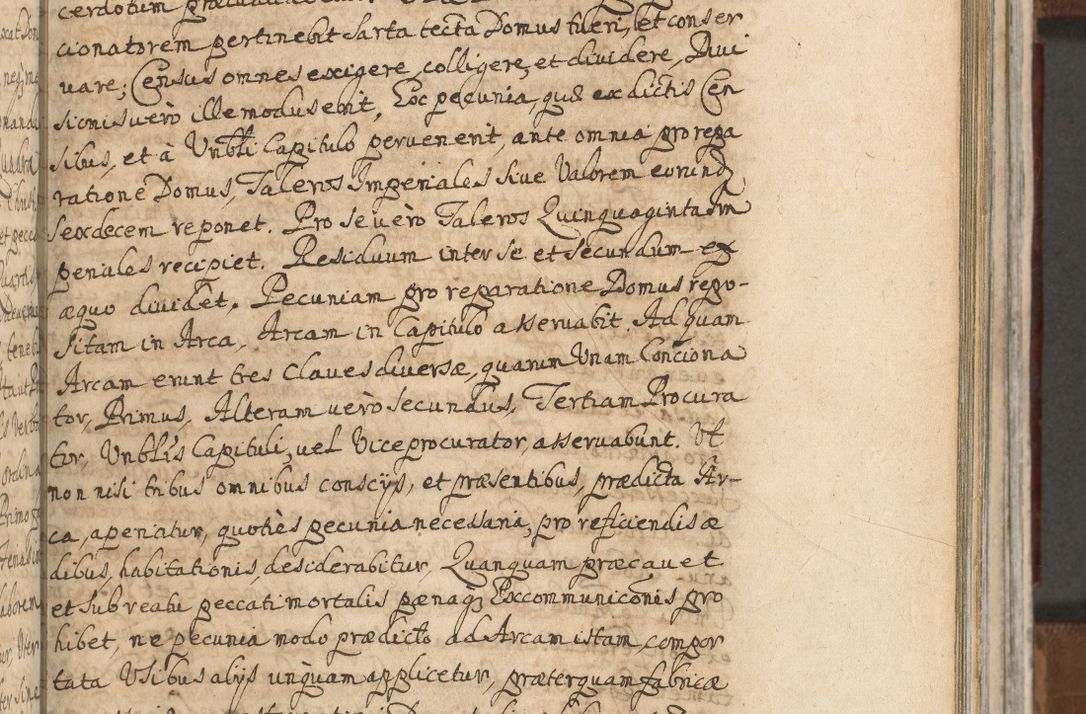 cionatorem pertinebit sarta tecta Domus tueri, et conser
uare; Census omnes exigere, colligere, et diuidere, Diui
sionis uerò ille modus erit, Eoc pecunia, quæ ex dictis Cen
sibus, et à Vnbli Capitulo peruenerit, ante omnia pro repa
ratione Domus, Taleros Imperiales siue Valorem eorundq,
sexdecem reponet. Pro se uerò Taleros Quinquaginta Im
periales recipiet. Residuum inter se et secundum ex
æquo diuidet. Pecuniam pro reparatione Domus repo-
sitam in Arca, Arcam in Capitulo asseruabit. Ad quam
Arcam erunt tres Claues diuersæ, quarum Vnam Conciona
tor, Primus, Alteram uerò secundus, Tertiam Procura
tor, Vnblis Capituli, uel Viceprocurator, asseruabunt. Vt
non nisi tribus omnibus conscijs, et præsentibus, prædicta Ar-
ca, aperiatur, quotiès pecunia necessaria, pro reficiendis æ
dibus, habitationis, desiderabitur, Quanquam præcauet
et sub reatu peccati mortalis pænaq; Excommunicõnis pro
hibet, ne pecunia modo prædicto ad Arcam istam compor
tata Vsibus alijs unquam applicetur, præterquam fabricæ